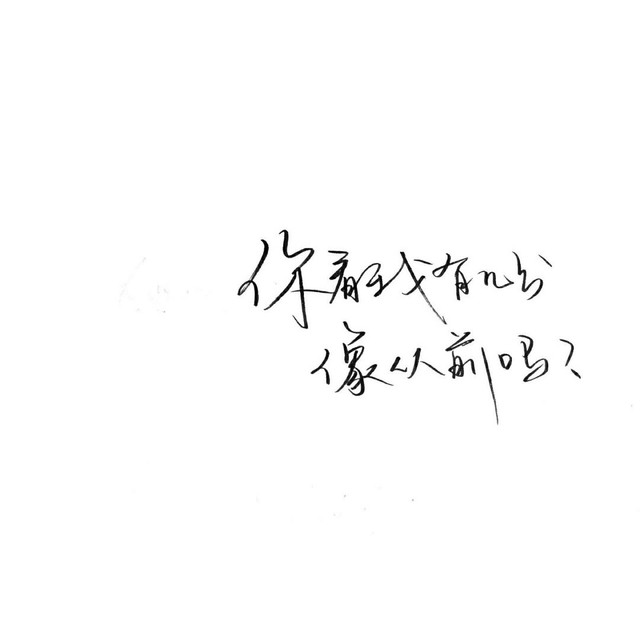 你看我有几分
像从前吗？